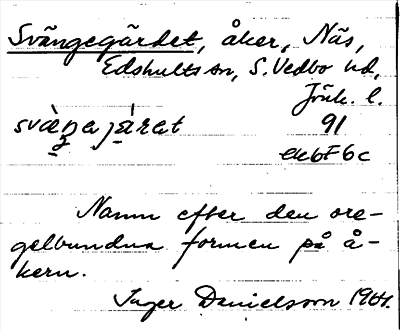 Svängegärdet, åker, Näs,
Edshults sn, S. Vedbo hd,
Jönk. l.
91
ek6F6c
Namn efter den ore-
gelbundna formen på å-
kern.
Inger Danielsson 1964.